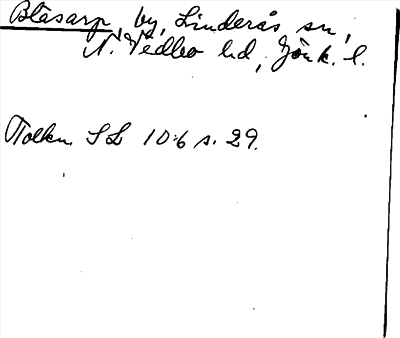 Blåsarp, by, Linderås sn,
N. Vedbo hd, Jönk. l.
Tolkn. SL 10:6 s. 29.